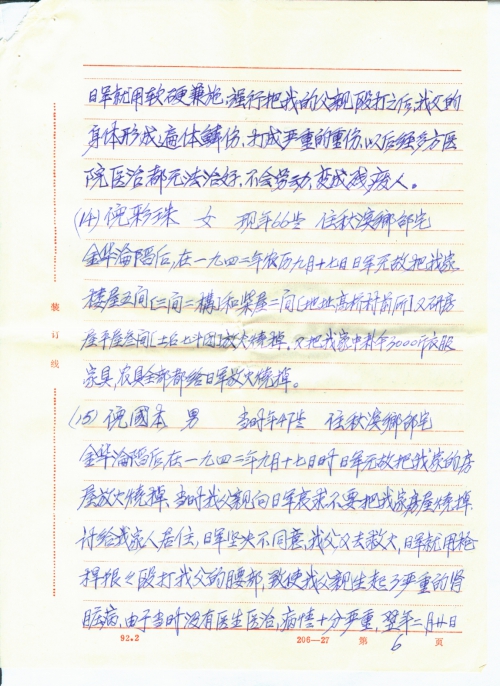 日军就用软硬兼施,强行把我的父亲殴打之后,我父的
身体形成遍体鳞伤,打成严重的重伤,以后经多方医
院医治都无法治好,不会劳动,变成残废人。
(14)倪彩珠 女 现年66岁 住秋滨乡部宅
金华沦陷后,在一九四二年农历九月十七日日军无故把我家
楼屋五间[三间二搆]和柴屋二间[地址高桥村前所]又研房
屋平屋叁间[土名七斗田]放火烧掉,又把我家中补谷3000斤衣服
家具,农具全部都给日军放火烧掉。
(15)倪國本 男 当时年47岁 住秋滨鄉部宅
金华沦陷后,在一九四二年九月十七日时日军无故把我家的房
屋放火烧掉,当时我父親向日军哀求不要把我家房屋烧掉
讨给我家人居住,日军坚决不同意,我父又去救火,日军就用枪
桿狠々殴打我父的腰部,致使我父亲生起了严重的肾
脏病,由于当时没有医生医治,病情十分严重,翌年二月廿日
装订线
92.2
206—27
第 6 页